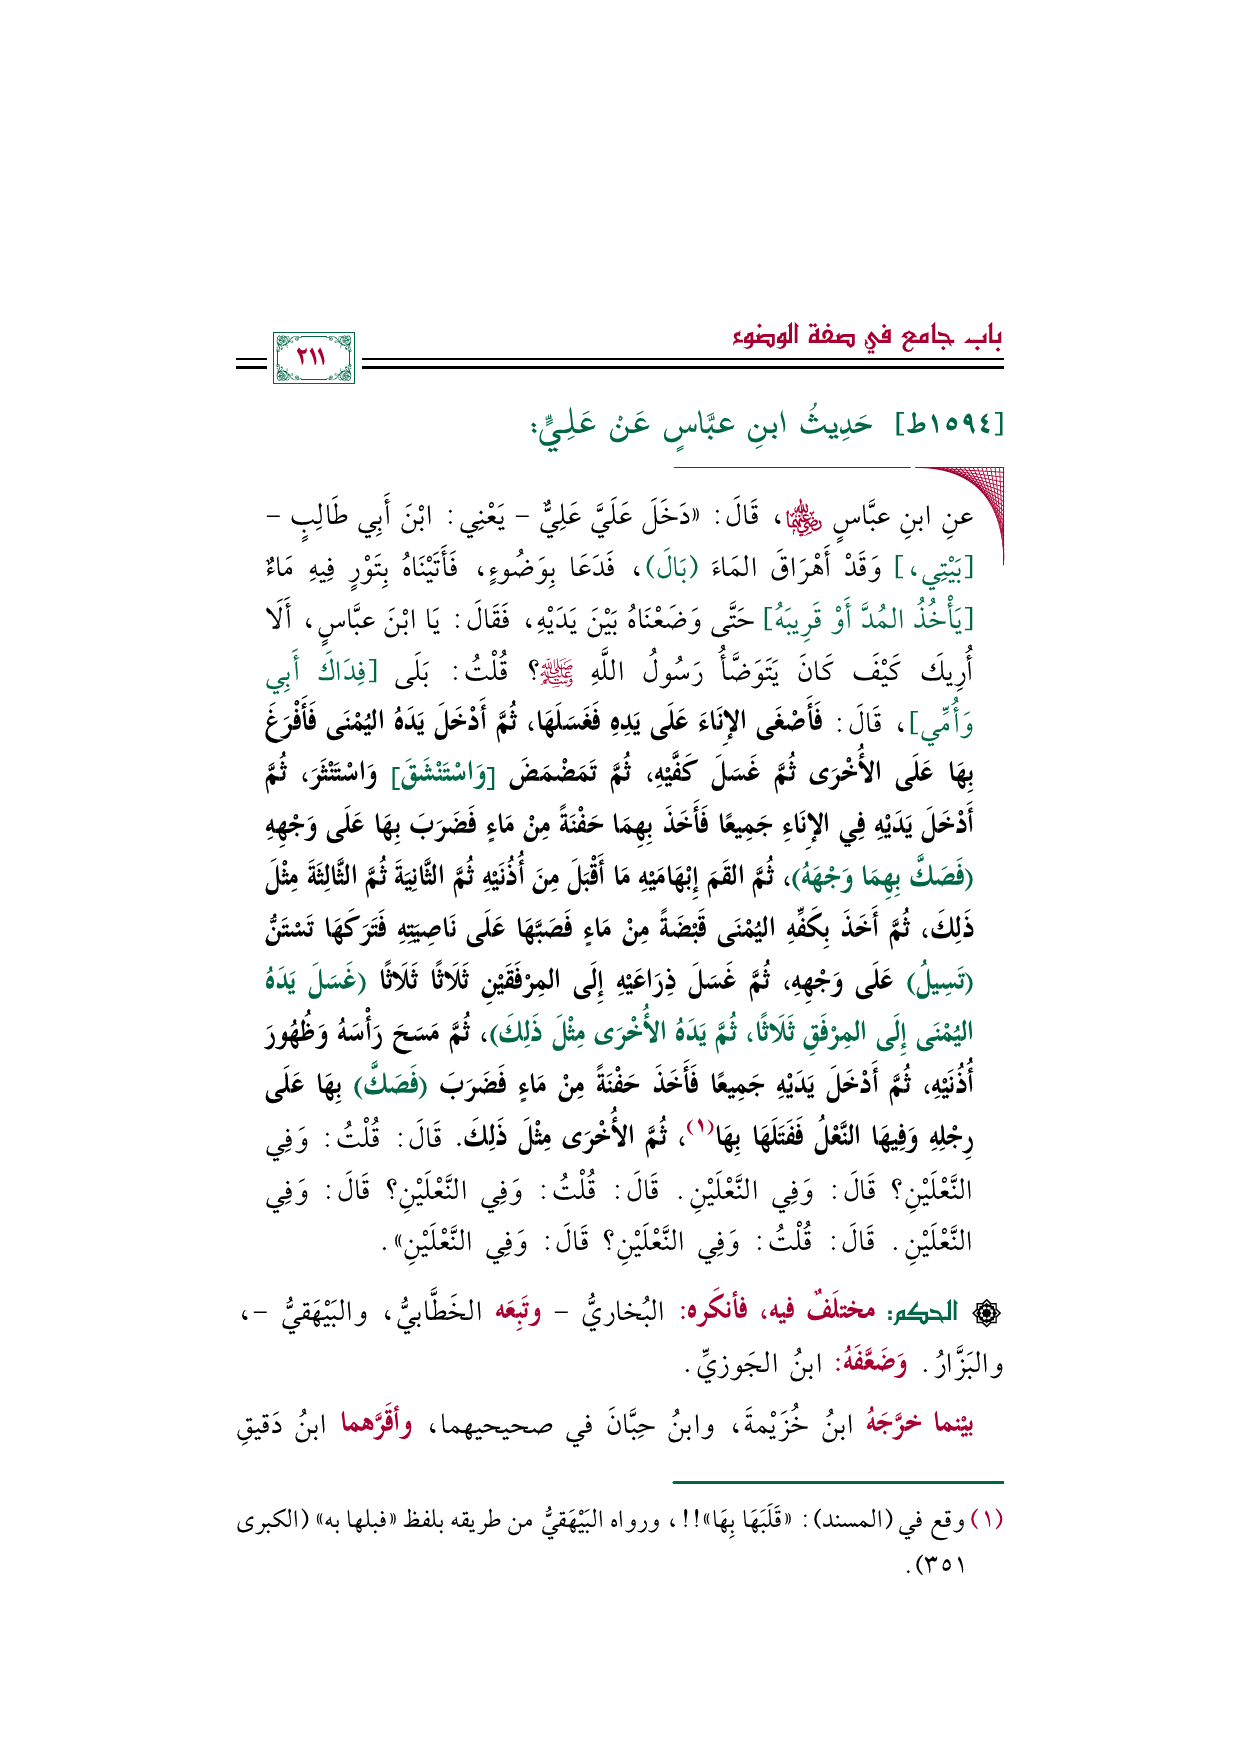 باب جامع في صفة الوضوء
٢١١
[١٥٩٤ط] حَدِيثُ ابنِ عبَّاسٍ عَنْ عَلِيٍّ:
عنِ ابنِ عبَّاسٍ رضي الله عنهما، قَالَ: «دَخَلَ عَلَيَّ عَلِيٌّ - يَعْنِي: ابْنَ أَبِي طَالِبٍ -
[بَيْتِي،] وَقَدْ أَهْرَاقَ المَاءَ (بَالَ)، فَدَعَا بِوَضُوءٍ، فَأَتَيْنَاهُ بِتَوْرٍ فِيهِ مَاءٌ
[يَأْخُذُ المُدَّ أَوْ قَرِيبَهُ] حَتَّى وَضَعْنَاهُ بَيْنَ يَدَيْهِ، فَقَالَ: يَا ابْنَ عبَّاسٍ، أَلَا
أُرِيكَ كَيْفَ كَانَ يَتَوَضَّأُ رَسُولُ اللَّهِ ﷺ؟ قُلْتُ: بَلَى [فِدَاكَ أَبِي
وَأُمِّي]، قَالَ: فَأَصْغَى الإِنَاءَ عَلَى يَدِهِ فَغَسَلَهَا، ثُمَّ أَدْخَلَ يَدَهُ اليُمْنَى فَأَفْرَغَ
بِهَا عَلَى الأُخْرَى ثُمَّ غَسَلَ كَفَّيْهِ، ثُمَّ تَمَضْمَضَ [وَاسْتَنْشَقَ] وَاسْتَنْثَرَ، ثُمَّ
أَدْخَلَ يَدَيْهِ فِي الإِنَاءِ جَمِيعًا فَأَخَذَ بِهِمَا حَفْنَةً مِنْ مَاءٍ فَضَرَبَ بِهَا عَلَى وَجْهِهِ
(فَصَكَّ بِهِمَا وَجْهَهُ)، ثُمَّ القَمَ إِبْهَامَيْهِ مَا أَقْبَلَ مِنَ أُذُنَيْهِ ثُمَّ الثَّانِيَةَ ثُمَّ الثَّالِثَةَ مِثْلَ
ذَلِكَ، ثُمَّ أَخَذَ بِكَفِّهِ اليُمْنَى قَبْضَةً مِنْ مَاءٍ فَصَبَّهَا عَلَى نَاصِيَتِهِ فَتَرَكَهَا تَسْتَنُّ
(تَسِيلُ) عَلَى وَجْهِهِ، ثُمَّ غَسَلَ ذِرَاعَيْهِ إِلَى المِرْفَقَيْنِ ثَلَاثًا ثَلَاثًا (غَسَلَ يَدَهُ
اليُمْنَى إِلَى المِرْفَقِ ثَلَاثًا، ثُمَّ يَدَهُ الأُخْرَى مِثْلَ ذَلِكَ)، ثُمَّ مَسَحَ رَأْسَهُ وَظُهُورَ
أُذُنَيْهِ، ثُمَّ أَدْخَلَ يَدَيْهِ جَمِيعًا فَأَخَذَ حَفْنَةً مِنْ مَاءٍ فَضَرَبَ (فَصَكَّ) بِهَا عَلَى
رِجْلِهِ وَفِيهَا النَّعْلُ فَفَتَلَهَا بِهَا(١)، ثُمَّ الأُخْرَى مِثْلَ ذَلِكَ. قَالَ: قُلْتُ: وَفِي
النَّعْلَيْنِ؟ قَالَ: وَفِي النَّعْلَيْنِ. قَالَ: قُلْتُ: وَفِي النَّعْلَيْنِ؟ قَالَ: وَفِي
النَّعْلَيْنِ. قَالَ: قُلْتُ: وَفِي النَّعْلَيْنِ؟ قَالَ: وَفِي النَّعْلَيْنِ».
الحكم: مختلَفٌ فيه، فأنكَره: البُخاريُّ - وتَبِعَه الخَطَّابيُّ، والبَيْهَقيُّ -،
والبَزَّارُ. وَضَعَّفَهُ: ابنُ الجَوزيِّ.
بيْنما خرَّجَهُ ابنُ خُزَيْمةَ، وابنُ حِبَّانَ في صحيحيهما، وأقَرَّهما ابنُ دَقيقِ
(١) وقع في (المسند): «قَلَبَهَا بِهَا»!!، ورواه البَيْهَقيُّ من طريقه بلفظ «فبلها به» (الكبرى
٣٥١).